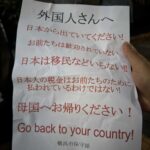 外国人さんへ
日本から出ていてください!
お前たちは歓迎されていない
日本は移民などいらない!!
日本人の税金はお前たちのために
払われているわけではない!
母国へお帰りください!
Go back to your country!